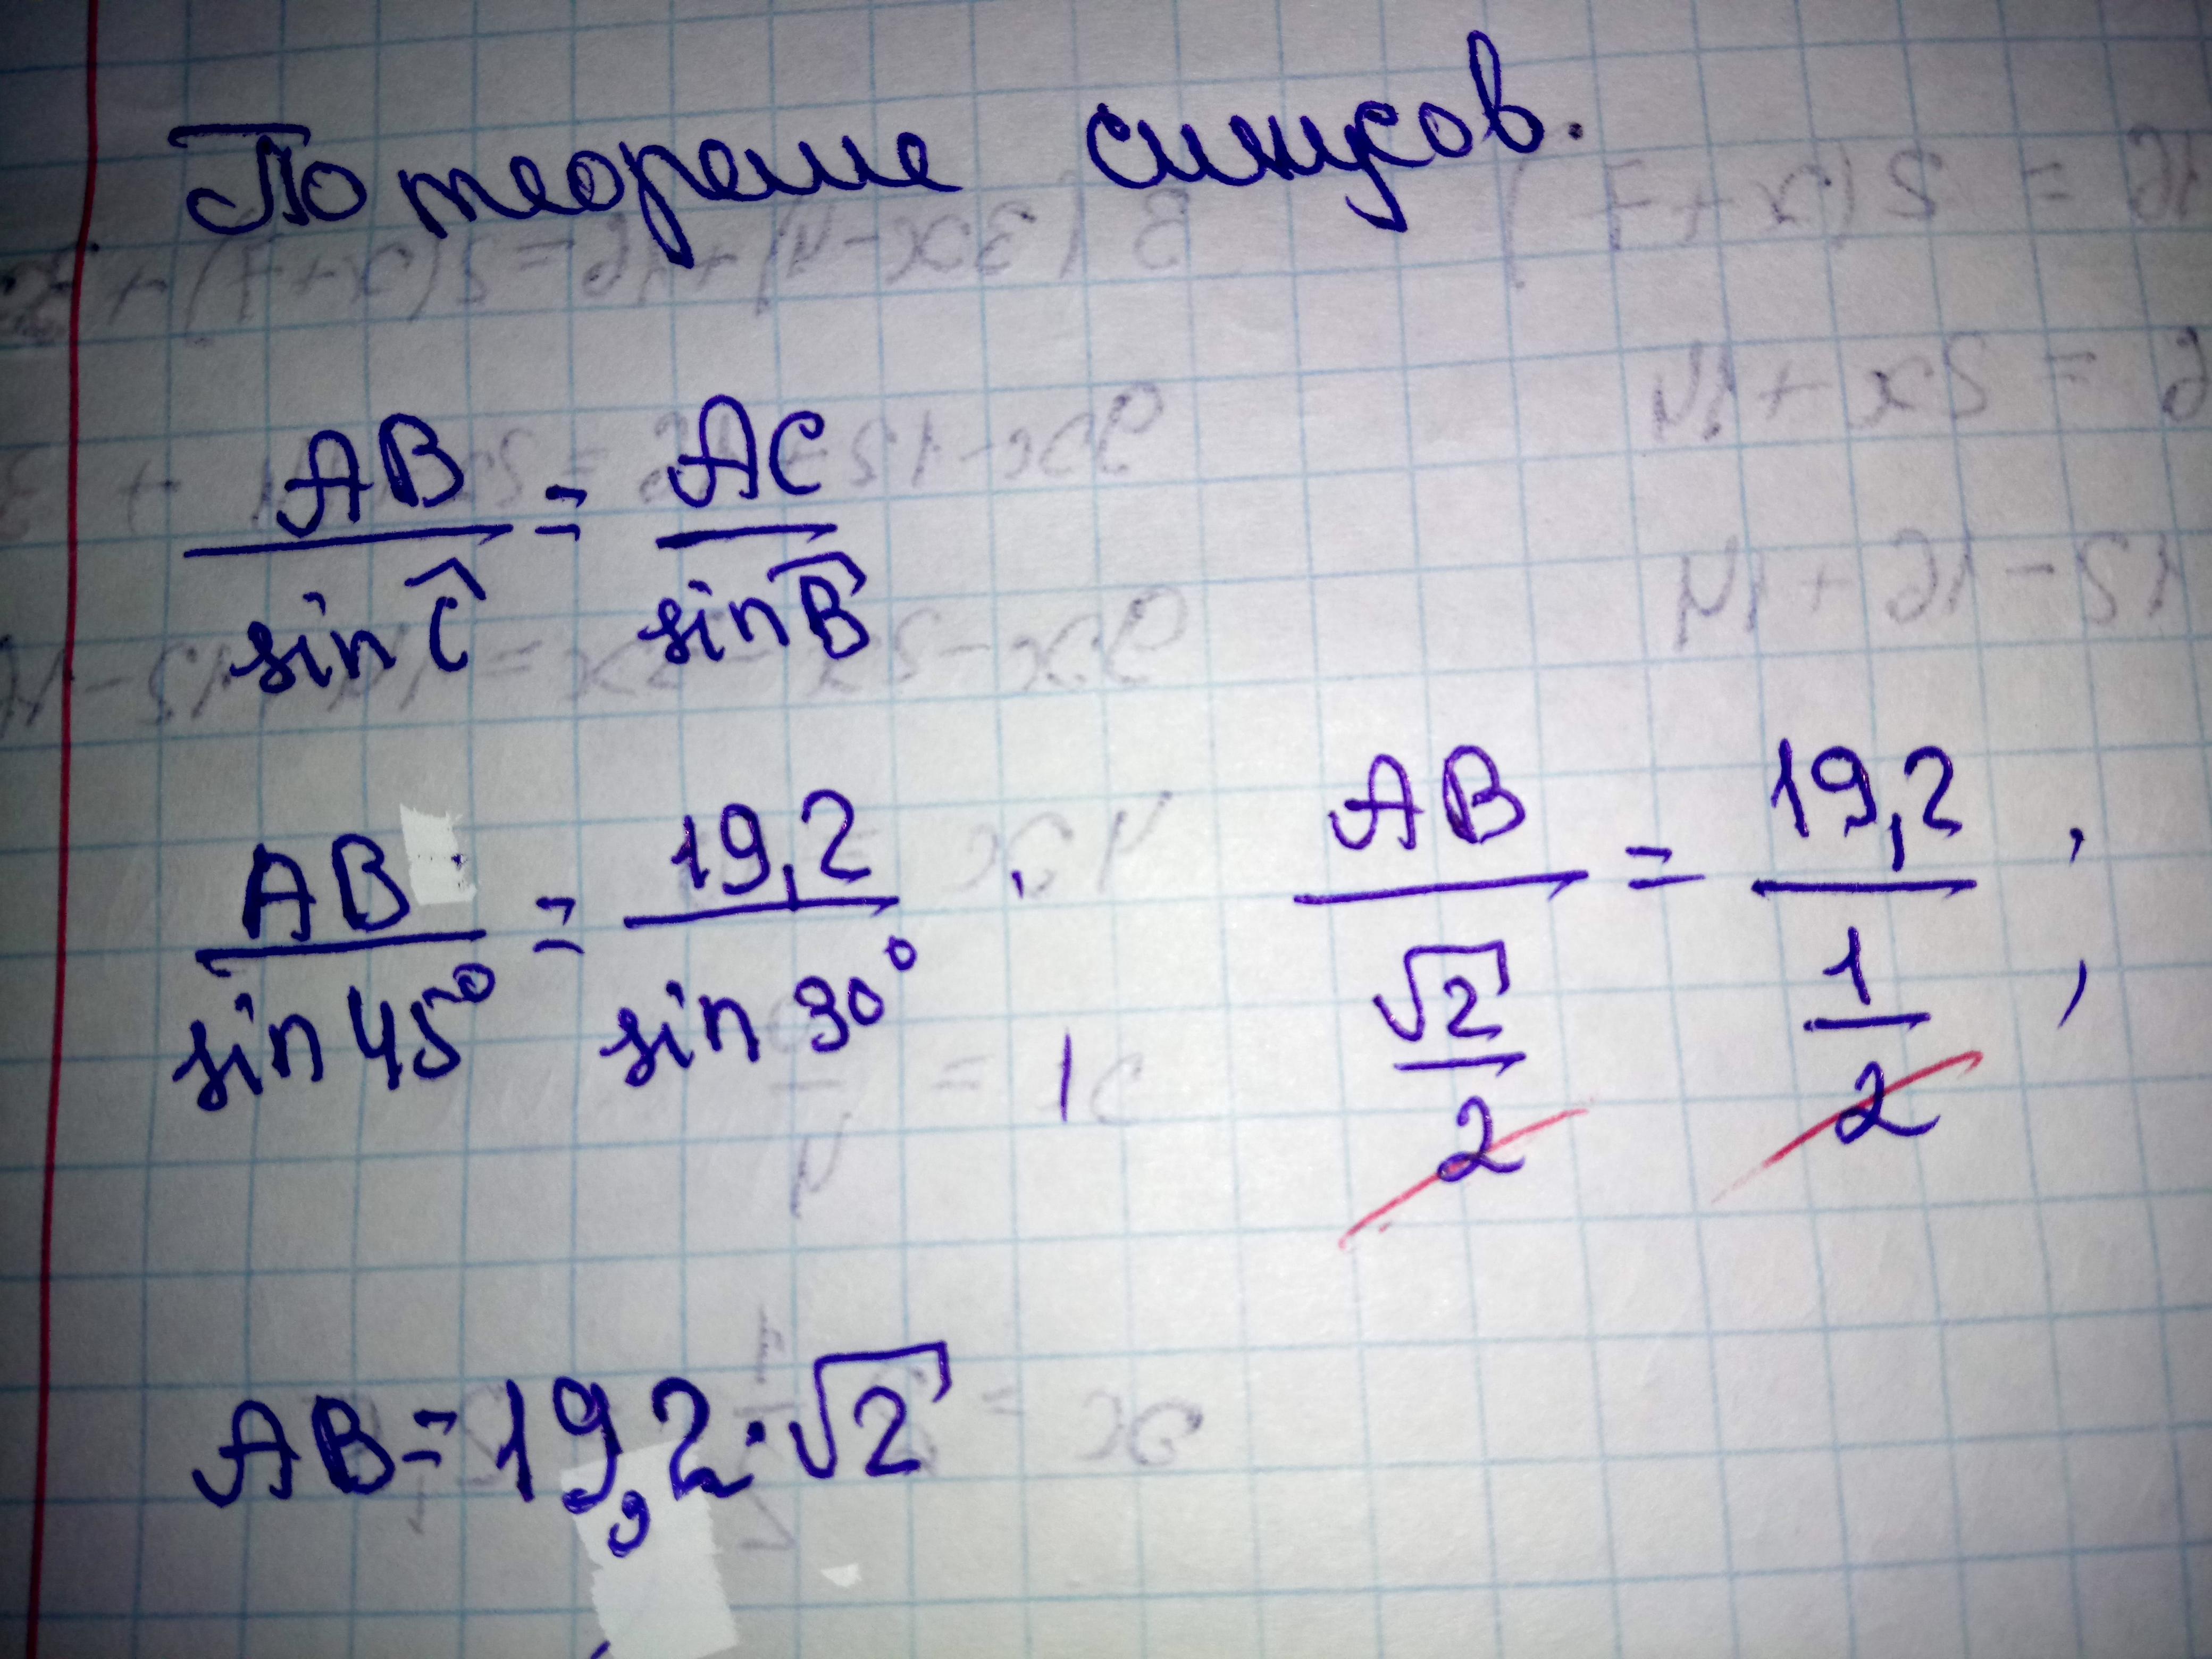 По теореме синусов.
AB/sin Ĉ = AC/sin B̂
AB/sin 45° = 19,2/sin 30° ; AB/(√2/2) = 19,2/(1/2) ;
AB = 19,2 · √2